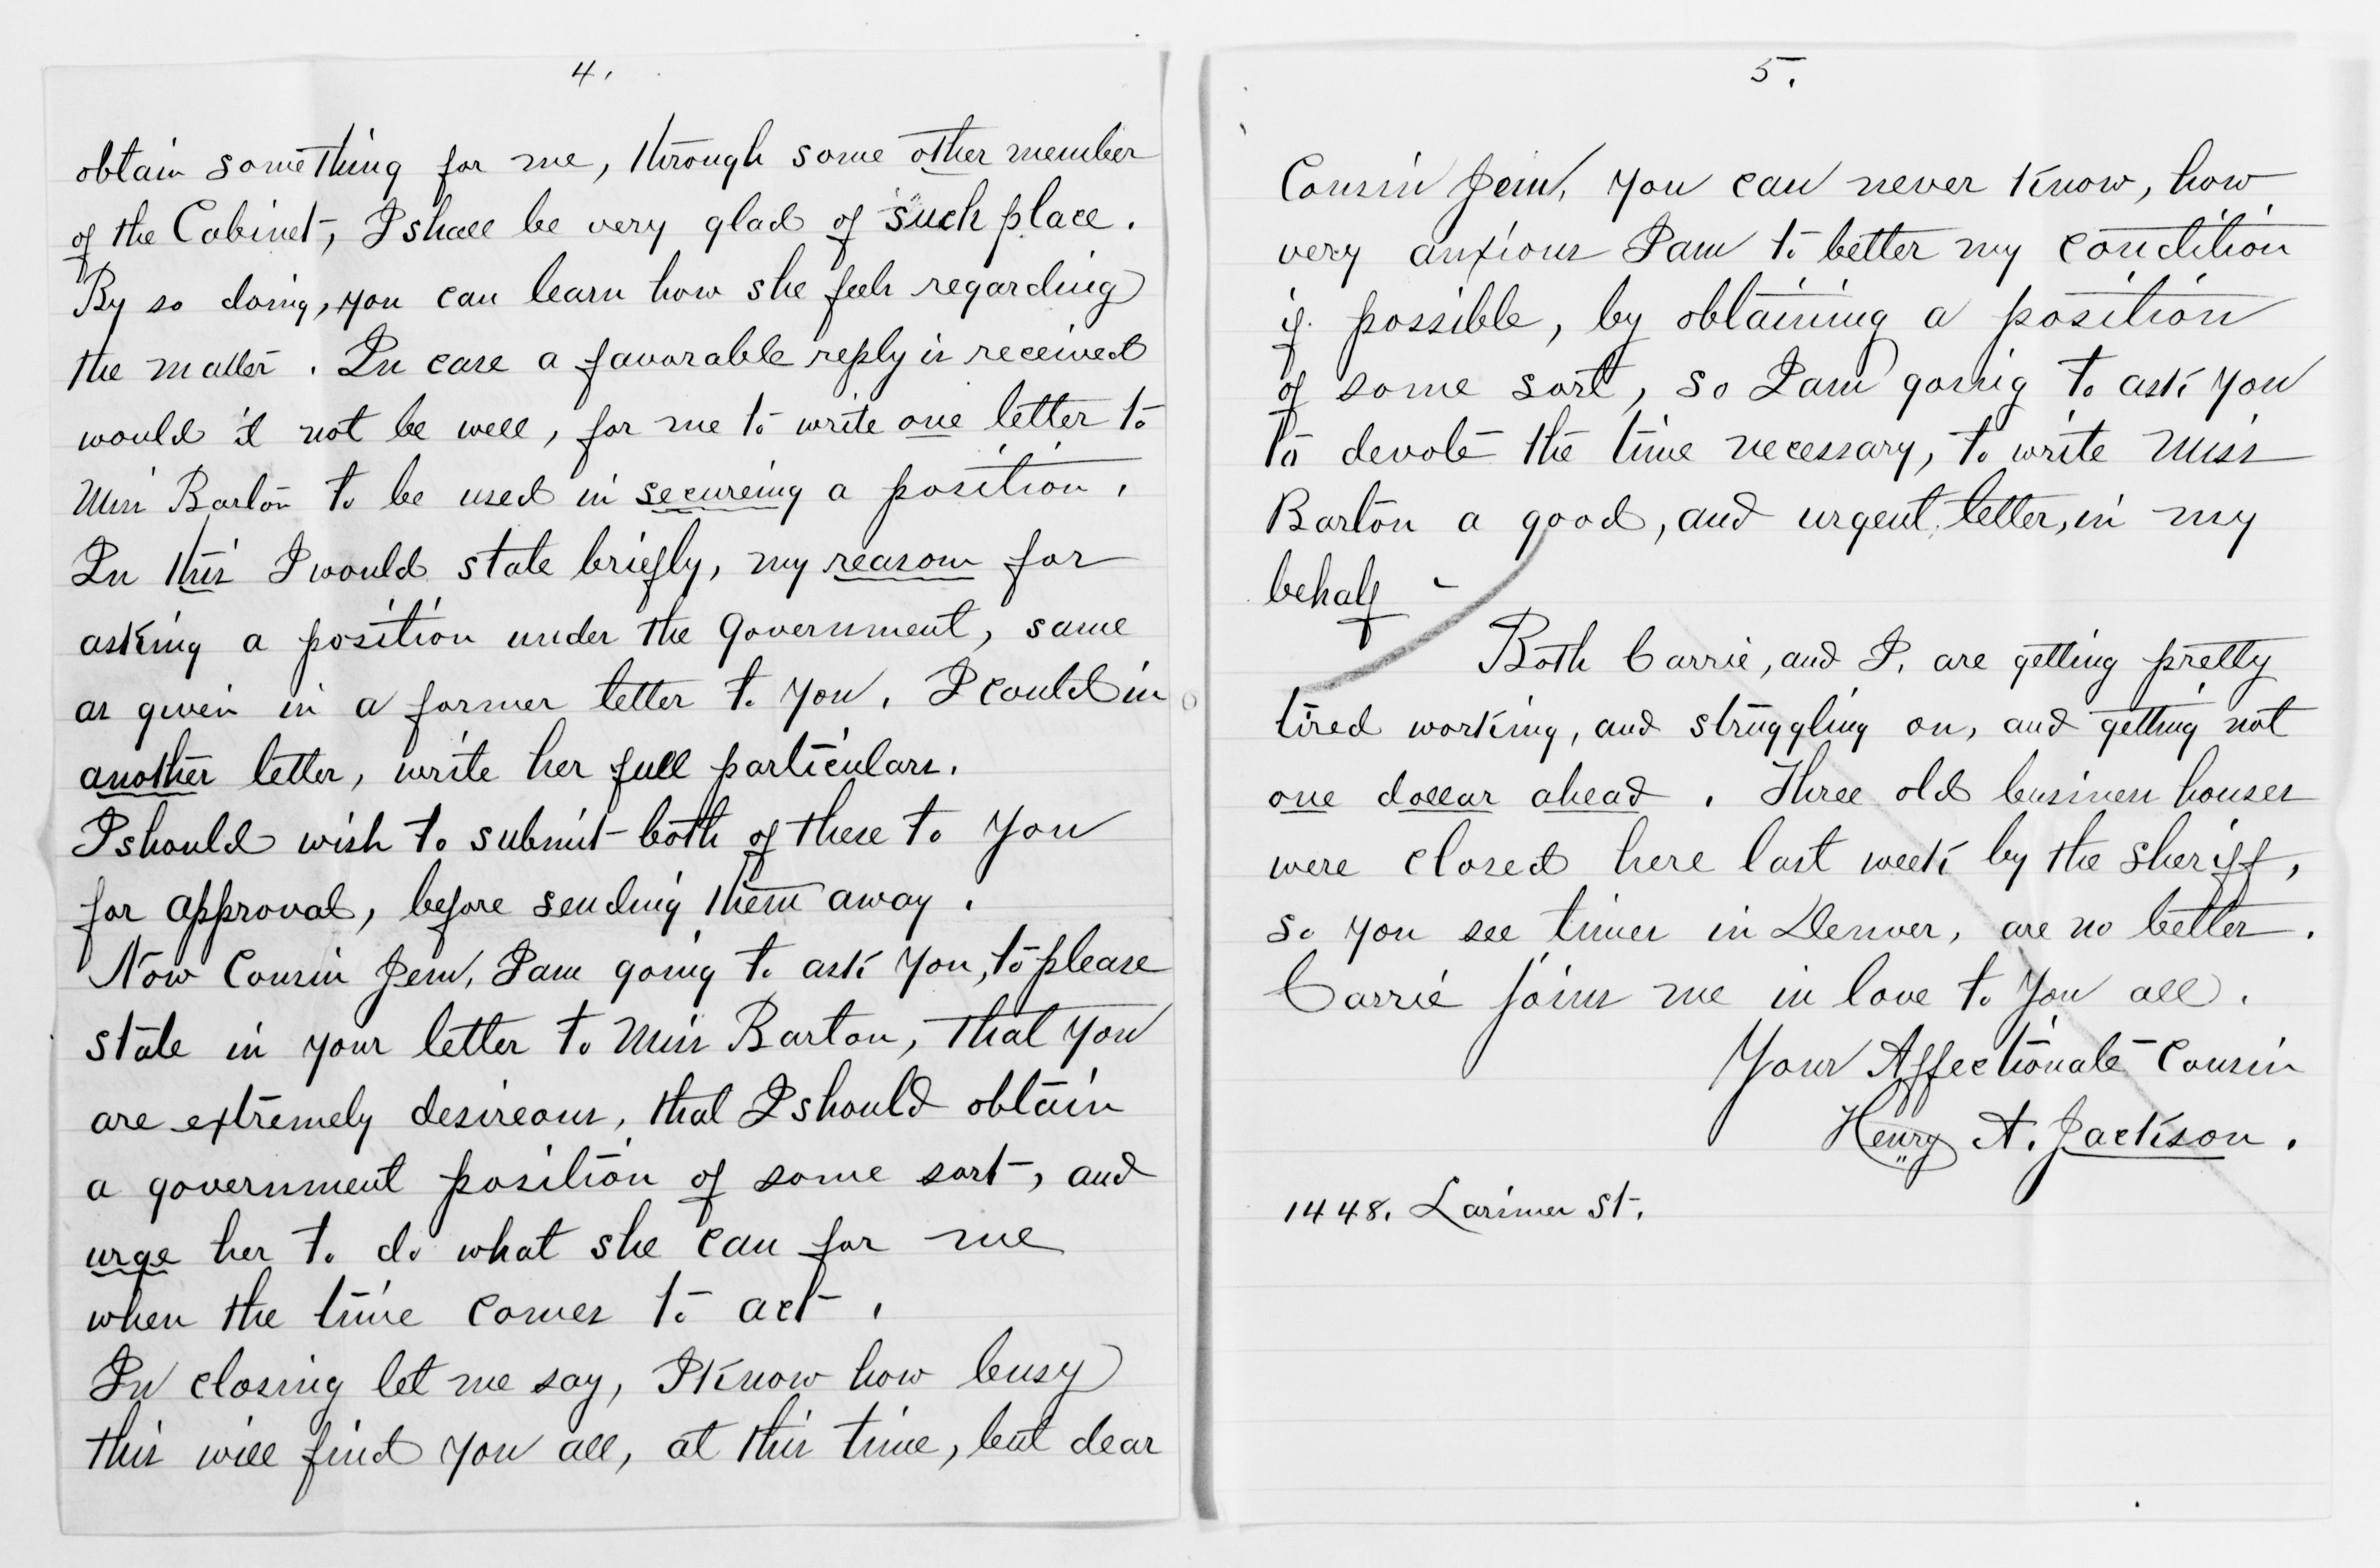 4.
obtain something for me, through some other member
of the Cabinet, I shall be very glad of such place.
By so doing, you can learn how she feels regarding
the matter. In case a favorable reply is received
would it not be well, for me to write one letter to
Miss Barton to be used in secureing a position.
In this I would state briefly, my reasons for
asking a position under the Government, same
as given in a former letter to you. I could in
another letter, write her full particulars.
I should wish to submit both of these to you
for approval, before sending them away.
Now Cousin Jem, I am going to ask you, to please
state in your letter to Miss Barton, that you
are extremely desireous, that I should obtain
a government position of some sort, and
urge her to do what she can for me
when the time comes to act.
In closing let me say, I know how busy
this will find you all, at this time, but dear
5.
Cousin Jem, you can never know, how
very anxious I am to better my condition
if possible, by obtaining a position
of some sort, so I am going to ask you
to devote the time necessary, to write Miss
Barton a good, and urgent letter, in my
behalf -
Both Carrie, and I, are getting pretty
tired working, and struggling on, and getting not
one dollar ahead. Three old business houses
were closed here last week by the sheriff,
so you see times in Denver, are no better.
Carrie joins me in love to you all.
Your Affectionate Cousin
Henry A. Jackson.
1448. Larimer St.